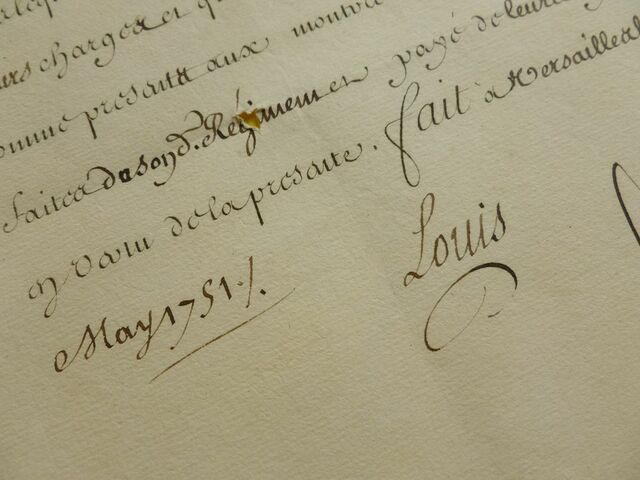 urs charges et q
omme présent aux montre
faites du sond. Régiment et payé de leurs
en vertu de la presente. fait à Versailles le
May 1751./.
Louis